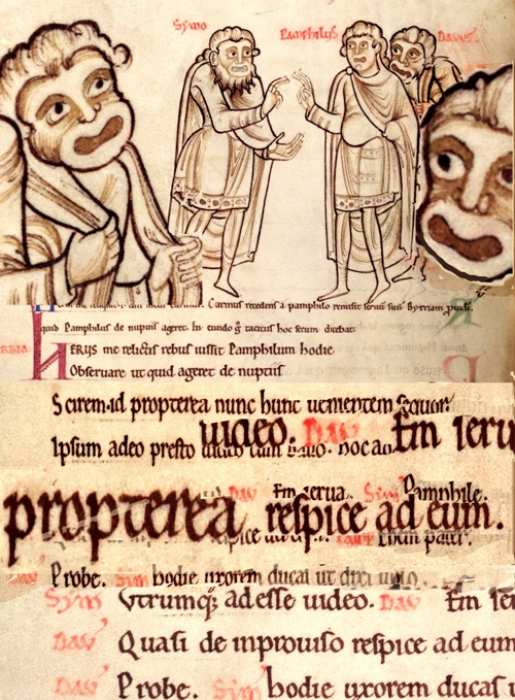 Symo Pamphilus Davus
Carinus recedens a pamphilo remisit seruu suu Byrriam
quid Pamphilus de nuptiis ageret. In eundo g̃ tacitus hoc secum dicebat.
HERUS me relictis rebus iussit Pamphilum hodie
Obseruare ut quid ageret de nuptiis
Scirem. id propterea nunc hunc uenientem sequor.
Ipsum adeo presto uideo. Dav Em seru
propterea respice ad eum.
Dav Em serua. Sim Pamphile.
Probe. Sim hodie uxorem ducas ut dixi uolo
Sym Vtrumq; adesse uideo. Dav Em ser
Dav Quasi de improuiso respice ad eum
Dav Probe. Sim hodie uxorem ducas